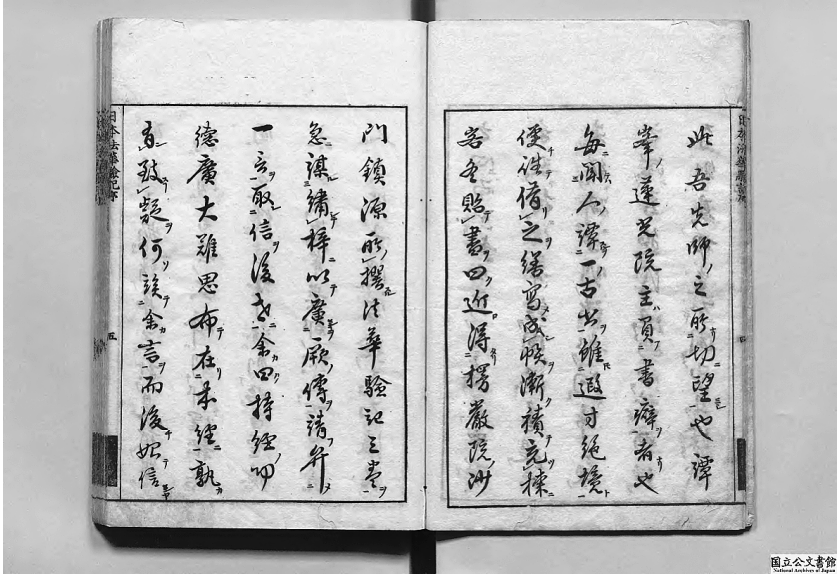 此吾先師之所切望也譚
峯蓮光院主買書癖者也
每聞人譚一古出雖遐寸絶境
便誂借之繕寫成帙漸積充棟
客冬貽書曰近得楞嚴院沙
門鎮源所撰法華驗記三卷
急謀繡梓以廣厥傳請弁
一言取信後世余曰持經功
德廣大難思布在本經孰
有致疑何須余言而後始信
日本法華驗記序
五
国立公文書館
National Archives of Japan